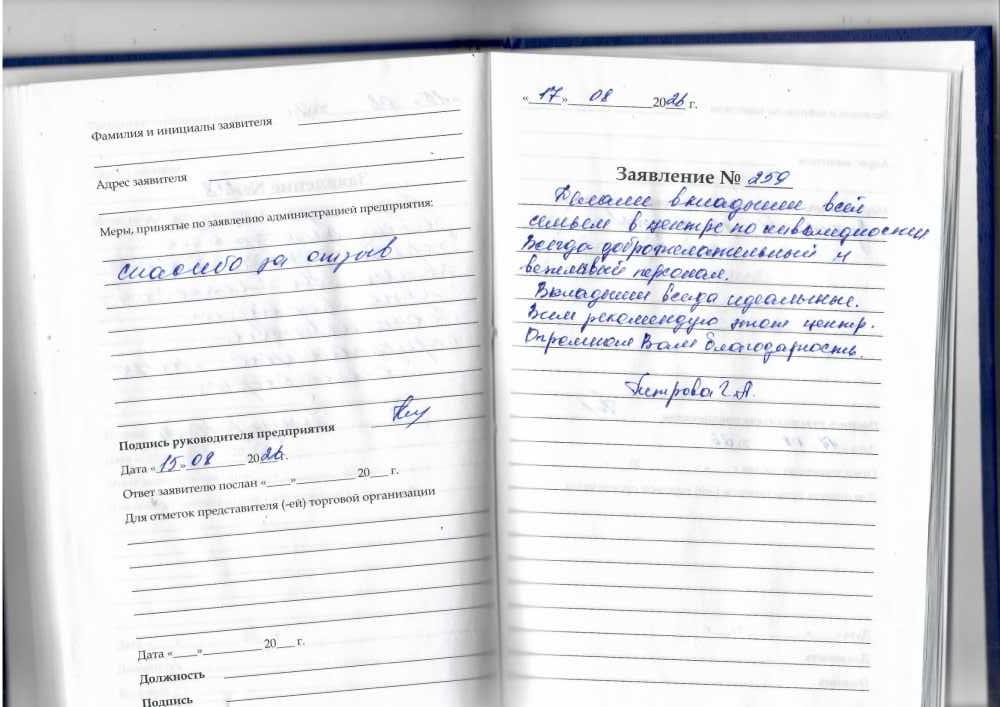 Фамилия и инициалы заявителя
Адрес заявителя
Меры, принятые по заявлению администрацией предприятия:
спасибо за отзыв
Подпись руководителя предприятия
Дата «15» 08 2026 г.
Ответ заявителю послан «___»__________ 20___ г.
Для отметок представителя (-ей) торговой организации
Дата «___»__________ 20___ г.
Должность
Подпись
«17» 08 2026 г.
Заявление № 259
Делали вкладыши всей
семьёй в центре по
Всегда доброжелательный и
вежливый персонал.
Вкладыши всегда идеальные.
Всем рекомендую этот центр.
Огромная Вам благодарность.
Петрова Г.А.